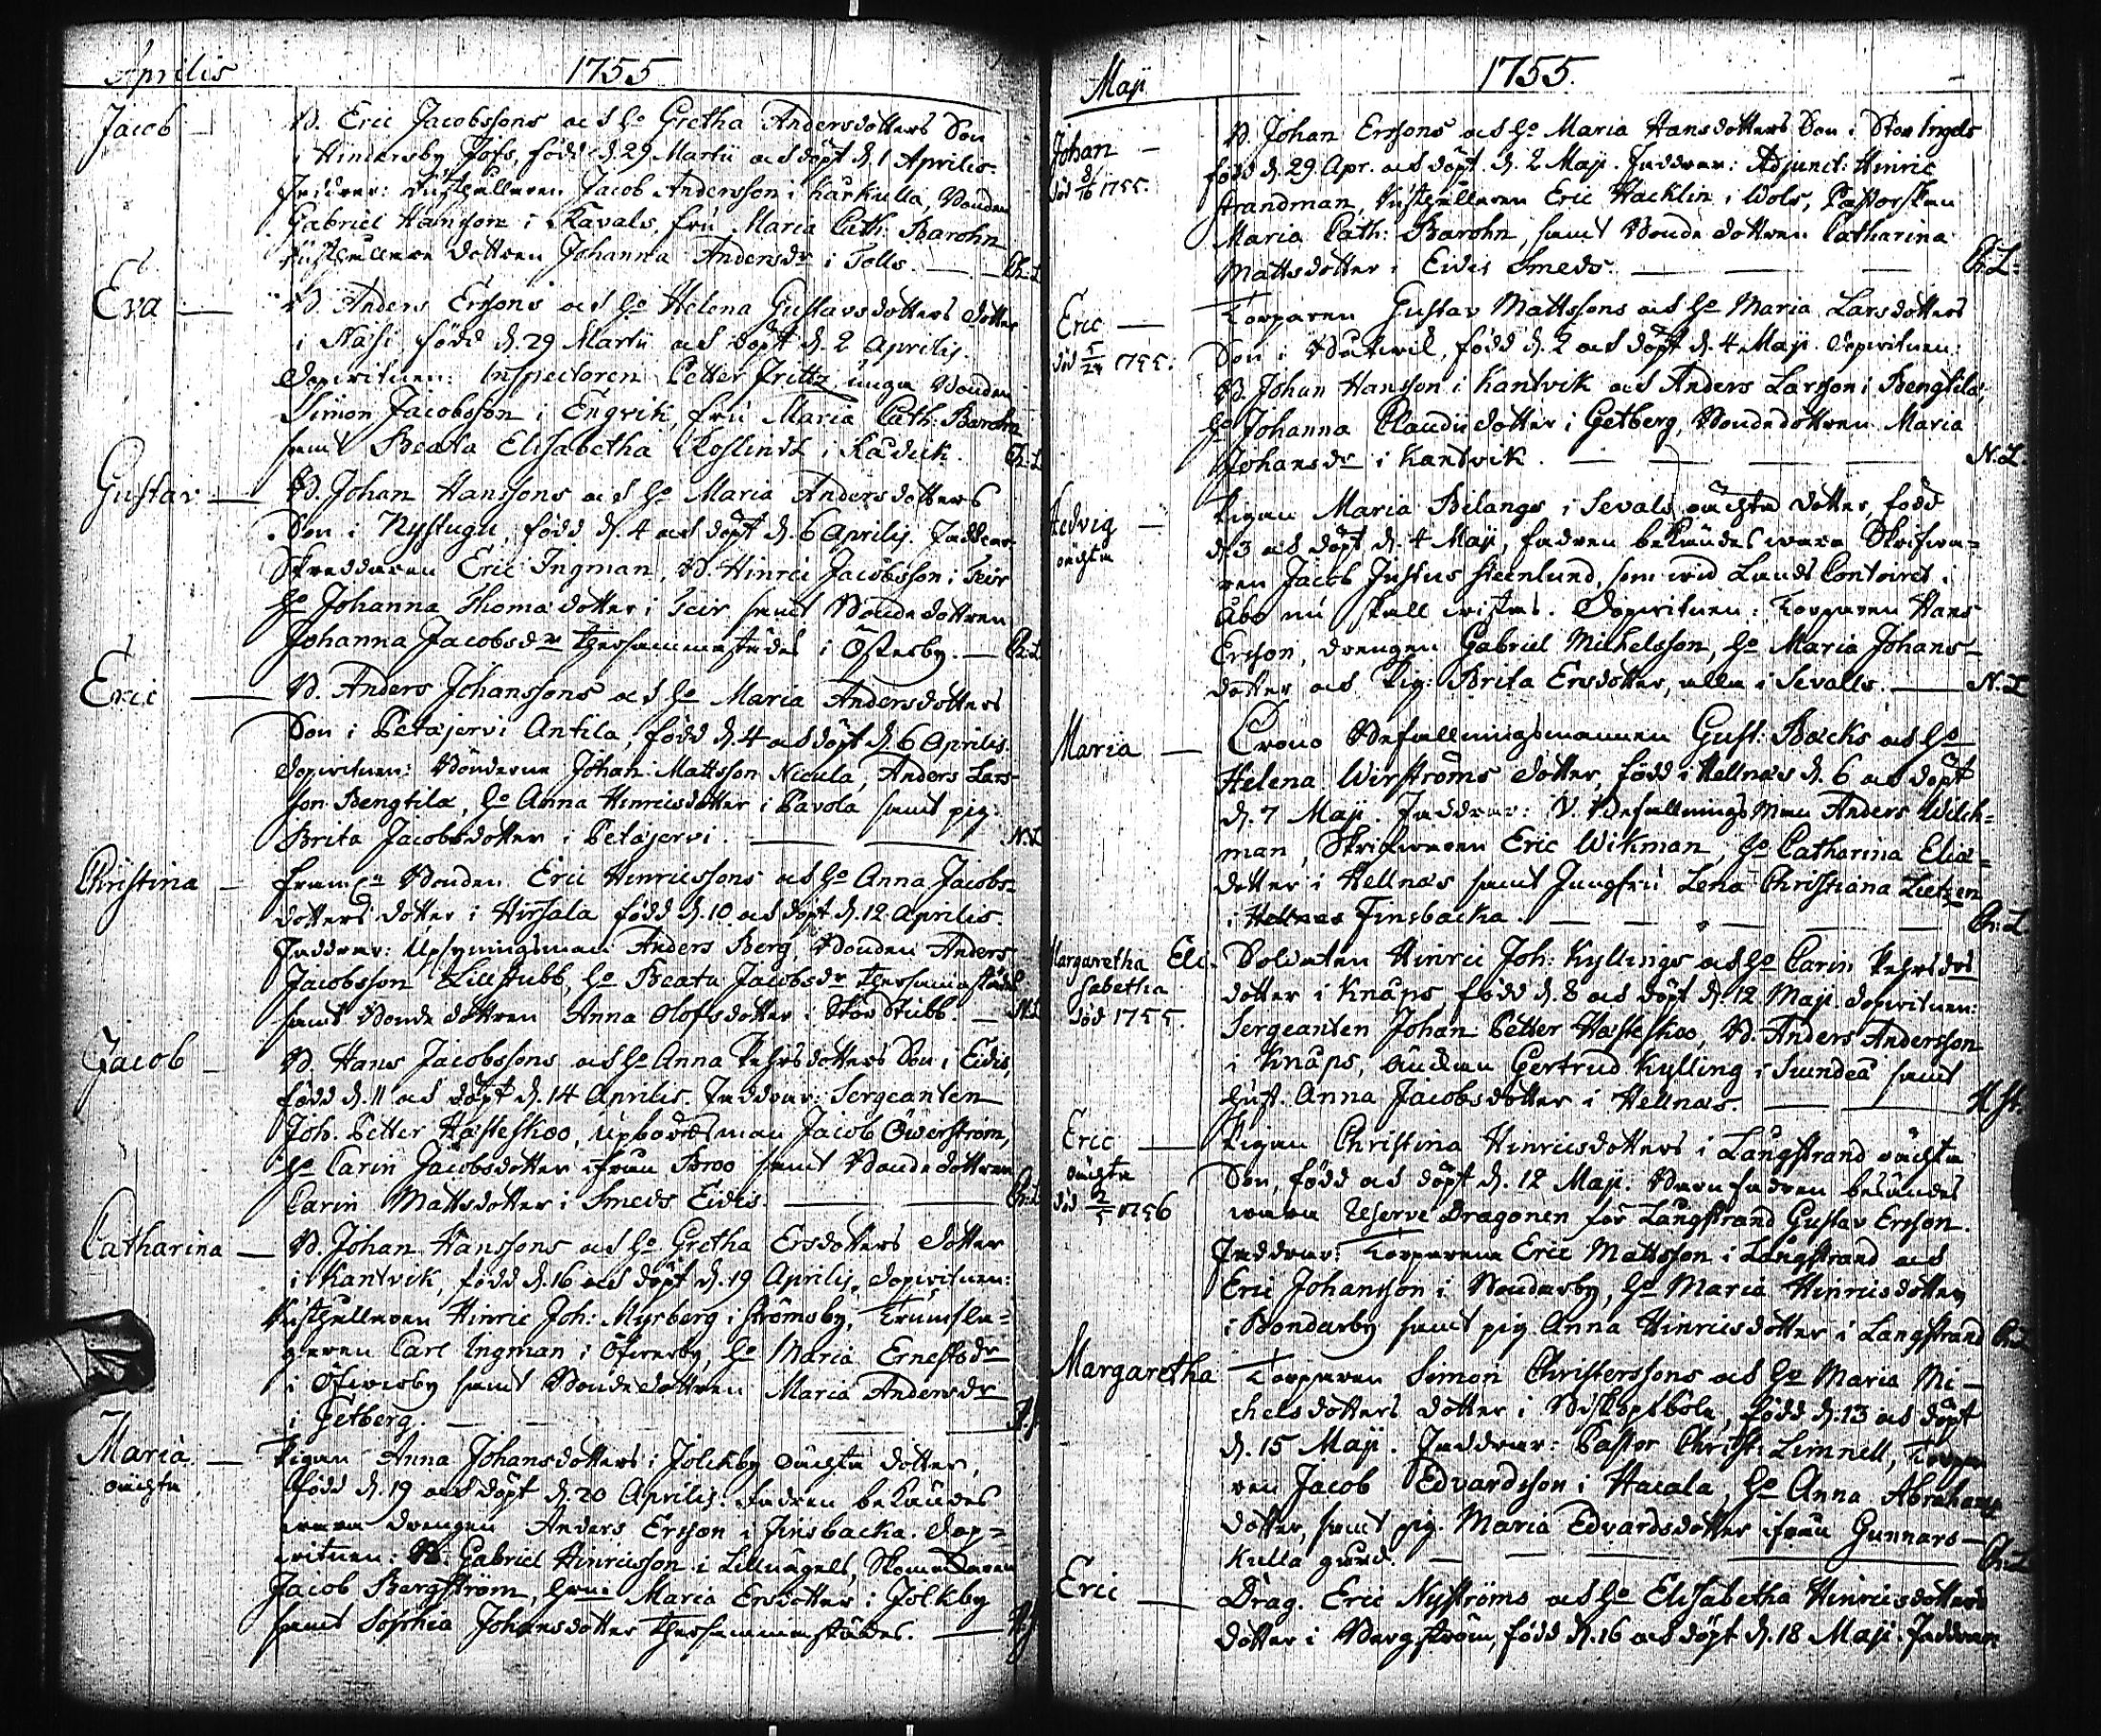 Aprilis 1755
Jacob B. Eric Jacobssons och H:o Gretha Andersdotters Son
i Hindersby Jofs, född d. 29 Martii och döpt d. 1 Aprilis.
Faddrar: Rusthållaren Jacob Andersson i Karkulla, Bonden
Gabriel Hansson i Kavals, fru Maria Cath: Barohn
Rusthållare dottren Johanna Andersdr i Tolls. Ch:L
Eva B. Anders Erssons och H:o Helena Gustavsdotters dotter
i Näsi född d. 29 Martii och döpt d. 2 Aprilis.
Dopvitnen: Inspectoren Petter Frittz unga Bonden
Simon Jacobsson i Engvik, fru Maria Cath: Barohn
samt Beata Elisabetha Roslindt i Rådick. Ch:L
Gustav B. Johan Hanssons och H:o Maria Andersdotters
Son i Nystugu, född d. 4 och döpt d. 6 Aprilis. Faddrar
Skreddaren Eric Ingman, B. Hinric Jacobsson i Teir
H:o Johanna Thomædotter i Teir samt Bondedottren
Johanna Jacobsdr thersammastädes i Österby. Ch:L
Eric B. Anders Johanssons och H:o Maria Andersdotters
Son i Petäjervi Antila, född d. 4 och döpt d. 6 Aprilis.
Dopvitnen: Bönderne Johan Mattsson Nicula, Anders Lars-
son Bengtila, H:o Anna Hinricsdotter i Pavola samt pig:
Brita Jacobsdotter i Petäjervi. N.L
Christina fram:ne Bonden Eric Hinricssons och H:o Anna Jacobs-
dotters dotter i Hirsala född d. 10 och döpt d. 12 Aprilis.
Faddrar: Upsyningsman Anders Berg, Bonden Anders
Jacobsson Lillstubb, H:o Beata Jacobsdr thersammastädes
samt Bonde dottren Anna Olofsdotter i Stor Stubb. N.L
Jacob B. Hans Jacobssons och H:o Anna Pehrsdotters Son i Eidis,
född d. 11 och döpt d. 14 Aprilis. Faddrar: Sergeanten
Joh. Petter Hästeskoo, Upbördsman Jacob Öwerström,
H:o Carin Jacobsdotter ifrån Broo samt Bondedottren
Carin Mattsdotter i Smeds Eidis. Ch:L
Catharina B. Johan Hanssons och H:o Gretha Ersdotters dotter
i Kantvik, född d. 16 och döpt d. 19 Aprilis, dopvitnen:
Rusthållaren Hinric Joh: Myrberg i Strömsby, Trumsla-
garen Carl Ingman i Öfwerby, H:o Maria Ernestsdr
i Öfwerby samt Bondedottren Maria Andersdr
i Getberg.
Maria Pigan Anna Johansdotters i Jolckby oächta dotter,
oächta född d. 19 och döpt d. 20 Aprilis. fadren bekändes
wara drengen Anders Ersson i Finsbacka. Dop-
vitnen: B. Gabriel Hinricsson i Lillnägels, Skomakaren
Jacob Bergström, H:o Maria Ersdotter i Jolkby
samt Sophia Johansdotter thersammastädes.
Maji 1755.
Johan B. Johan Erssons och H:o Maria Hansdotters Son i Stor Ingels
död 1755. född d. 29 Apr. och döpt d. 2 Maji. Faddrar: Adjunct: Hinric
Strandman, Rusthållaren Eric Hacklin i Wols, Pastorskan
Maria Cath: Barohn, samt Bonde dottren Catharina
Mattsdotter i Eidis Smeds. Ch:L:
Eric Torparen Gustav Mattssons och H:o Maria Larsdotters
död 5/24 1755. Son i Båtvik, född d. 2 och döpt d. 4 Maji. Dopvitnen:
B. Johan Hansson i Kantvik och Anders Larsson i Bengtila,
H:o Johanna Claudiidotter i Getberg, Bondedottren Maria
Johansdr i Kantvik. N.L.
Hedvig Pigan Maria Bilangs i Sevals oächta dotter, född
oächta d. 3 och döpt d. 4 Maji, fadren bekändes wara Skrifwa-
ren Jacob Justus Steenlund, som wid Lands Contoiret i
Åbo nu skall vistas. Dopvitnen: Torparen Hans
Ersson, drengen Gabriel Michelsson, H:o Maria Johans-
dotter och Pig: Brita Ersdotter, alla i Sevalls. N.L
Maria Crono Befallningsmannen Gust: Bäcks och H:o
Helena Wirströms dotter, född i Hellnäs d. 6 och döpt
d. 7 Maji. Faddrar: V. Befallnings Man Anders Wich-
man, Skrifwaren Eric Wikman, H:o Catharina Eliæ-
dotter i Hellnäs samt Jungfru Lena Christiana Lietzen
i Finsbacka. Ch:L
Margaretha Eli- Soldaten Hinric Joh: Kyllings och H:o Carin Pehrsdrs
sabetha dotter i Knåps, född d. 8 och döpt d. 12 Maji. dopvitnen:
död 1755. Sergeanten Johan Petter Hästeskoo, B. Anders Andersson
i Knåps, änkan Gertrud Kylling i Siundeå samt
hust. Anna Jacobsdotter i Hellnäs. H.St.
Eric Pigan Christina Hinricsdotters i Långstrand oächta
oächta Son, född och döpt d. 12 Maji. Barnfadren bekändes
död 2/5 1756 wara Reserve Dragonen för Långstrand Gustav Ersson.
Faddrar: Torparena Eric Mattsson i Långstrand och
Eric Johansson i Bondarby, H:o Maria Hinricsdotter
i Bondarby samt pig. Anna Hinricsdotter i Langstrand Ch:L
Margaretha Torparen Simon Christerssons och H:o Maria Mi-
chelsdotters dotter i Biskopsböle, född d. 13 och döpt
d. 15 Maji. Faddrar: Pastor Christ: Limnell, Torpa-
ren Jacob Edvardsson i Hacala, H:o Anna Abrahams
dotter, samt pig. Maria Edvardsdotter ifrån Gunnars-
kulla gård. Ch:L
Eric Drag. Eric Nyströms och H:o Elisabetha Hinricsdotters
dotter i Bergström, född d. 16 och döpt d. 18 Maji. Faddrar